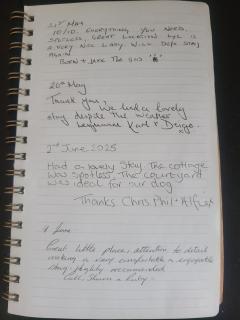 21st May
10/10. Everything you need.
Spotless, great location Lyl is
a very nice lady. Will defo stay
again
Born + Jake The dog
26th May
Thank you,
We had a lovely
stay despite the weather
Karl + x
2nd June 2025
Had a lovely stay. The cottage
was spotless. The courtyard
was ideal for our dog
Thanks Chris, Phil + Alfie x
9 June
Great little place, attention to detail
making a very comfortable + enjoyable
stay, highly recommended
Shaun + Ruby.